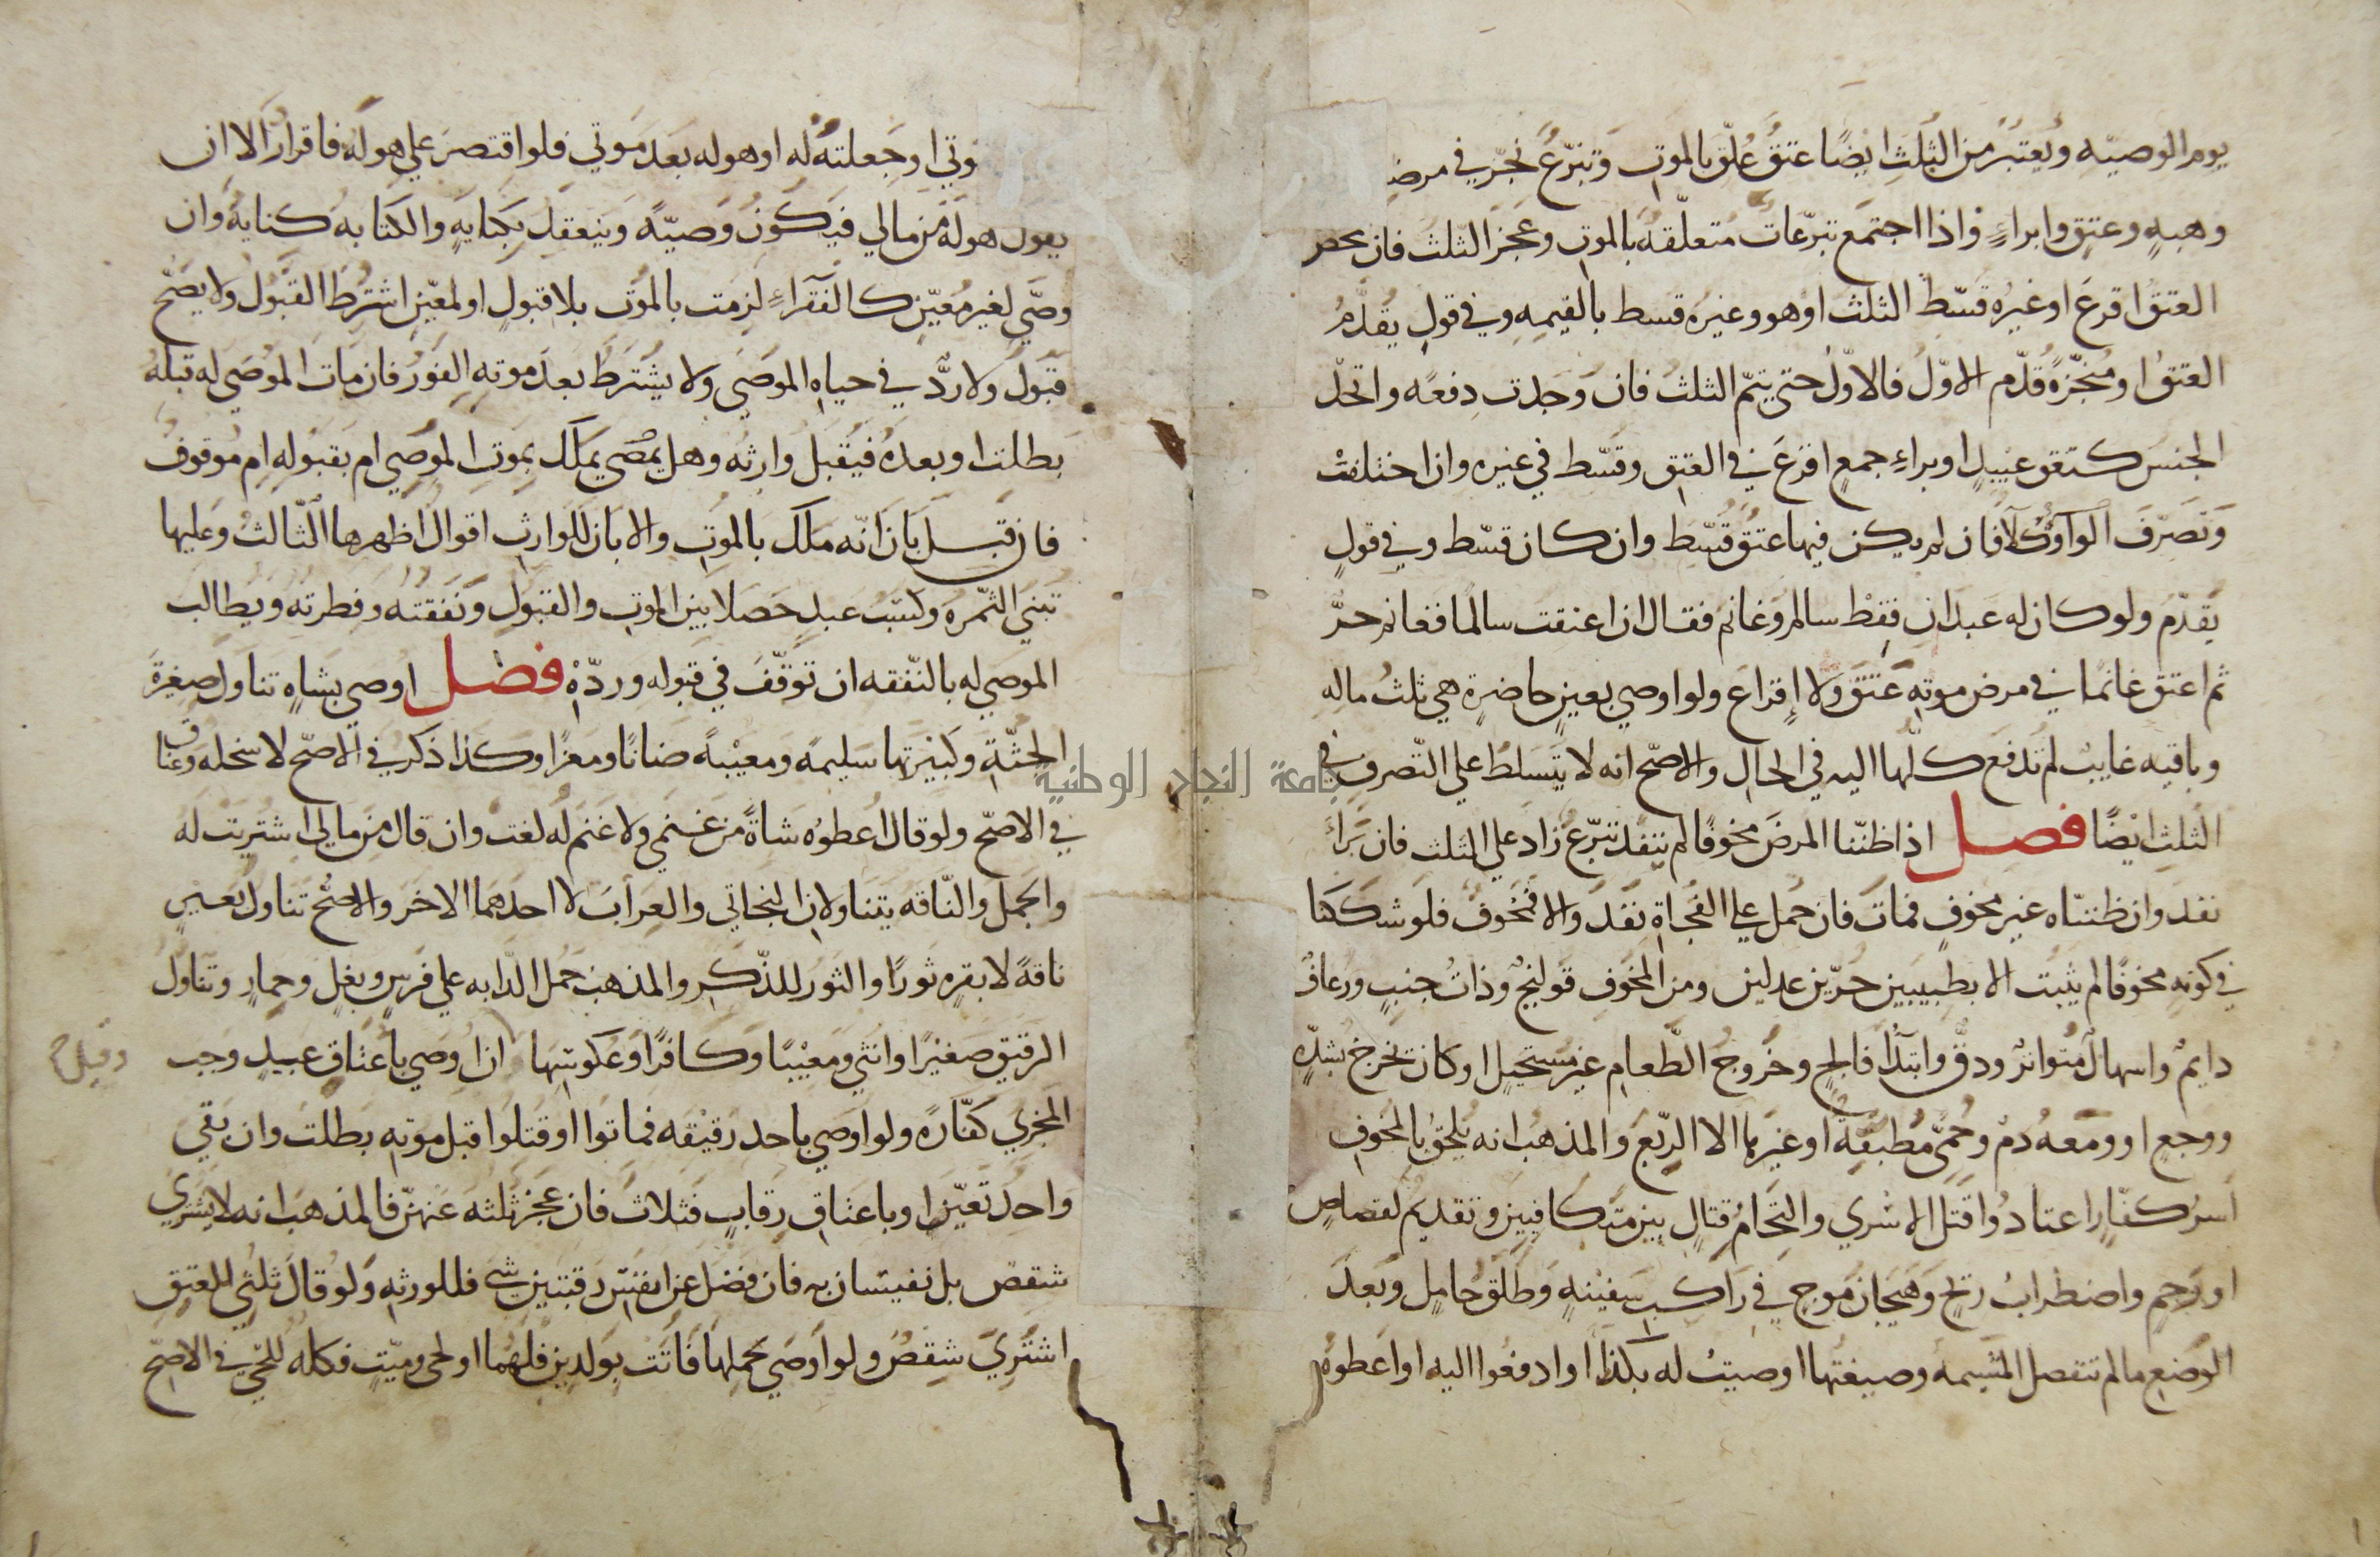 يوم الوصيه ويعتبر من الثلث ايضا عتق علق بالموت وتبرع نجز في مرضه
وهبه وعتق وابراء واذا اجتمع تبرعات متعلقه بالموت وعجز الثلث فان تمحض
العتق اقرع او غيره قسط الثلث او هو وغيره قسط بالقيمه وفي قول يقدم
العتق او منجزة قدم الاول فالاول حتى يتم الثلث فان وجدت دفعه واتحد
الجنس كعتق عبيد او براء جمع اقرع في العتق وقسط في غيره وان اختلفت
وتصرف وكلا فان لم يكن فيها عتق قسط وان كان قسط وفي قول
يقدم ولو كان له عبدان فقط سالم وغانم فقال ان اعتقت سالما فغانم حر
ثم اعتق غانما في مرض موته عتق ولا إقراع ولو اوصي بعين حاضرة هي ثلث ماله
وباقيه غايب لم تدفع كلها اليه في الحال والاصح انه لا يتسلط علي التصرف في
الثلث ايضا فصل اذا ظننا المرض مخوفا لم ينفذ تبرع زاد علي الثلث فان برأ
نفذ وان ظنناه غير مخوف فمات فان حمل علي الفجاة نفذ والا فمخوف فلو شككنا
في كونه مخوفا لم يثبت الا بطبيبين حرين عدلين ومن المخوف قولنج وذات جنب ورعاف
دايم واسهال متواتر ودق وابتدأ فالج وخروج الطعام غير مستحيل او كان يخرج بشدة
ووجع او ومعه دم وحمى مطبقة او غيرها الا الربع والمذهب انه يلحق بالمخوف
اسر كفار اعتادوا قتل الاسري والتحام قتال بين متكافيين وتقديم لقصاص
او رجم واضطراب ريح وهيجان موج في راكب سفينه وطلق حامل وبعد
الوضع ما لم تنفصل المشيمه وصيغتها اوصيت له بكذا او ادفعوا اليه او اعطوه
موتي او جعلته له او هو له بعد موتي فلو اقتصر علي هو له فاقرار الا ان
يقول هو له من مالي فيكون وصية وينعقد بكنايه والكتابه كنايه وان
وصي لغير معين كالفقراء لزمت بالموت بلا قبول او لمعين اشترط القبول ولا يصح
قبول ولا رد في حياه الموصي ولا يشترط بعد موته الفور فان مات الموصي له قبله
بطلت او بعده فيقبل وارثه وهل يملك بموت الموصي ام بقبوله ام موقوف
فان قبل بان انه ملك بالموت والا بان للوارث اقوال اظهرها الثالث وعليها
تبني الثمره وكسب عبد حصلا بين الموت والقبول ونفقته وفطرته ويطالب
الموصي له بالنفقه ان توقف في قبوله ورده فصل اوصي بشاه تناول صغيرة
الجثة وكبيرتها سليمة ومعيبة ضانا ومعزا وكذا ذكر في الاصح لا سخله وعناق
في الاصح ولو قال اعطوه شاة من غنمي ولا غنم له لغت وان قال من مالي اشتريت له
والجمل والناقه يتناولان البخاتي والعراب لا احدهما الاخر والاصح تناول بعير
ناقة لا بقره ثورا والثور للذكر والمذهب حمل الدابه علي فرس وبغل وحمار وتناول
الرقيق صغيرا وانثي ومعيبا وكافرا وعكوسها ان اوصي باعتاق عبيد وجب
وقيل ح
المجزي كفارة ولو اوصي باحد رقيقه فماتوا او قتلوا قبل موته بطلت وان بقي
واحد تعين او باعتاق رقاب فثلاث فان عجز ثلثه عنهن فالمذهب انه لا يشتري
شقص بل نفيستان به فان فضل عن انفس رقبتين شي فللورثه ولو قال ثلثي للعتق
اشتري شقص ولو اوصي بحملها فاتت بولدين فلهما او لحى وميت فكله للحي في الاصح
جامعة النجاح الوطنية